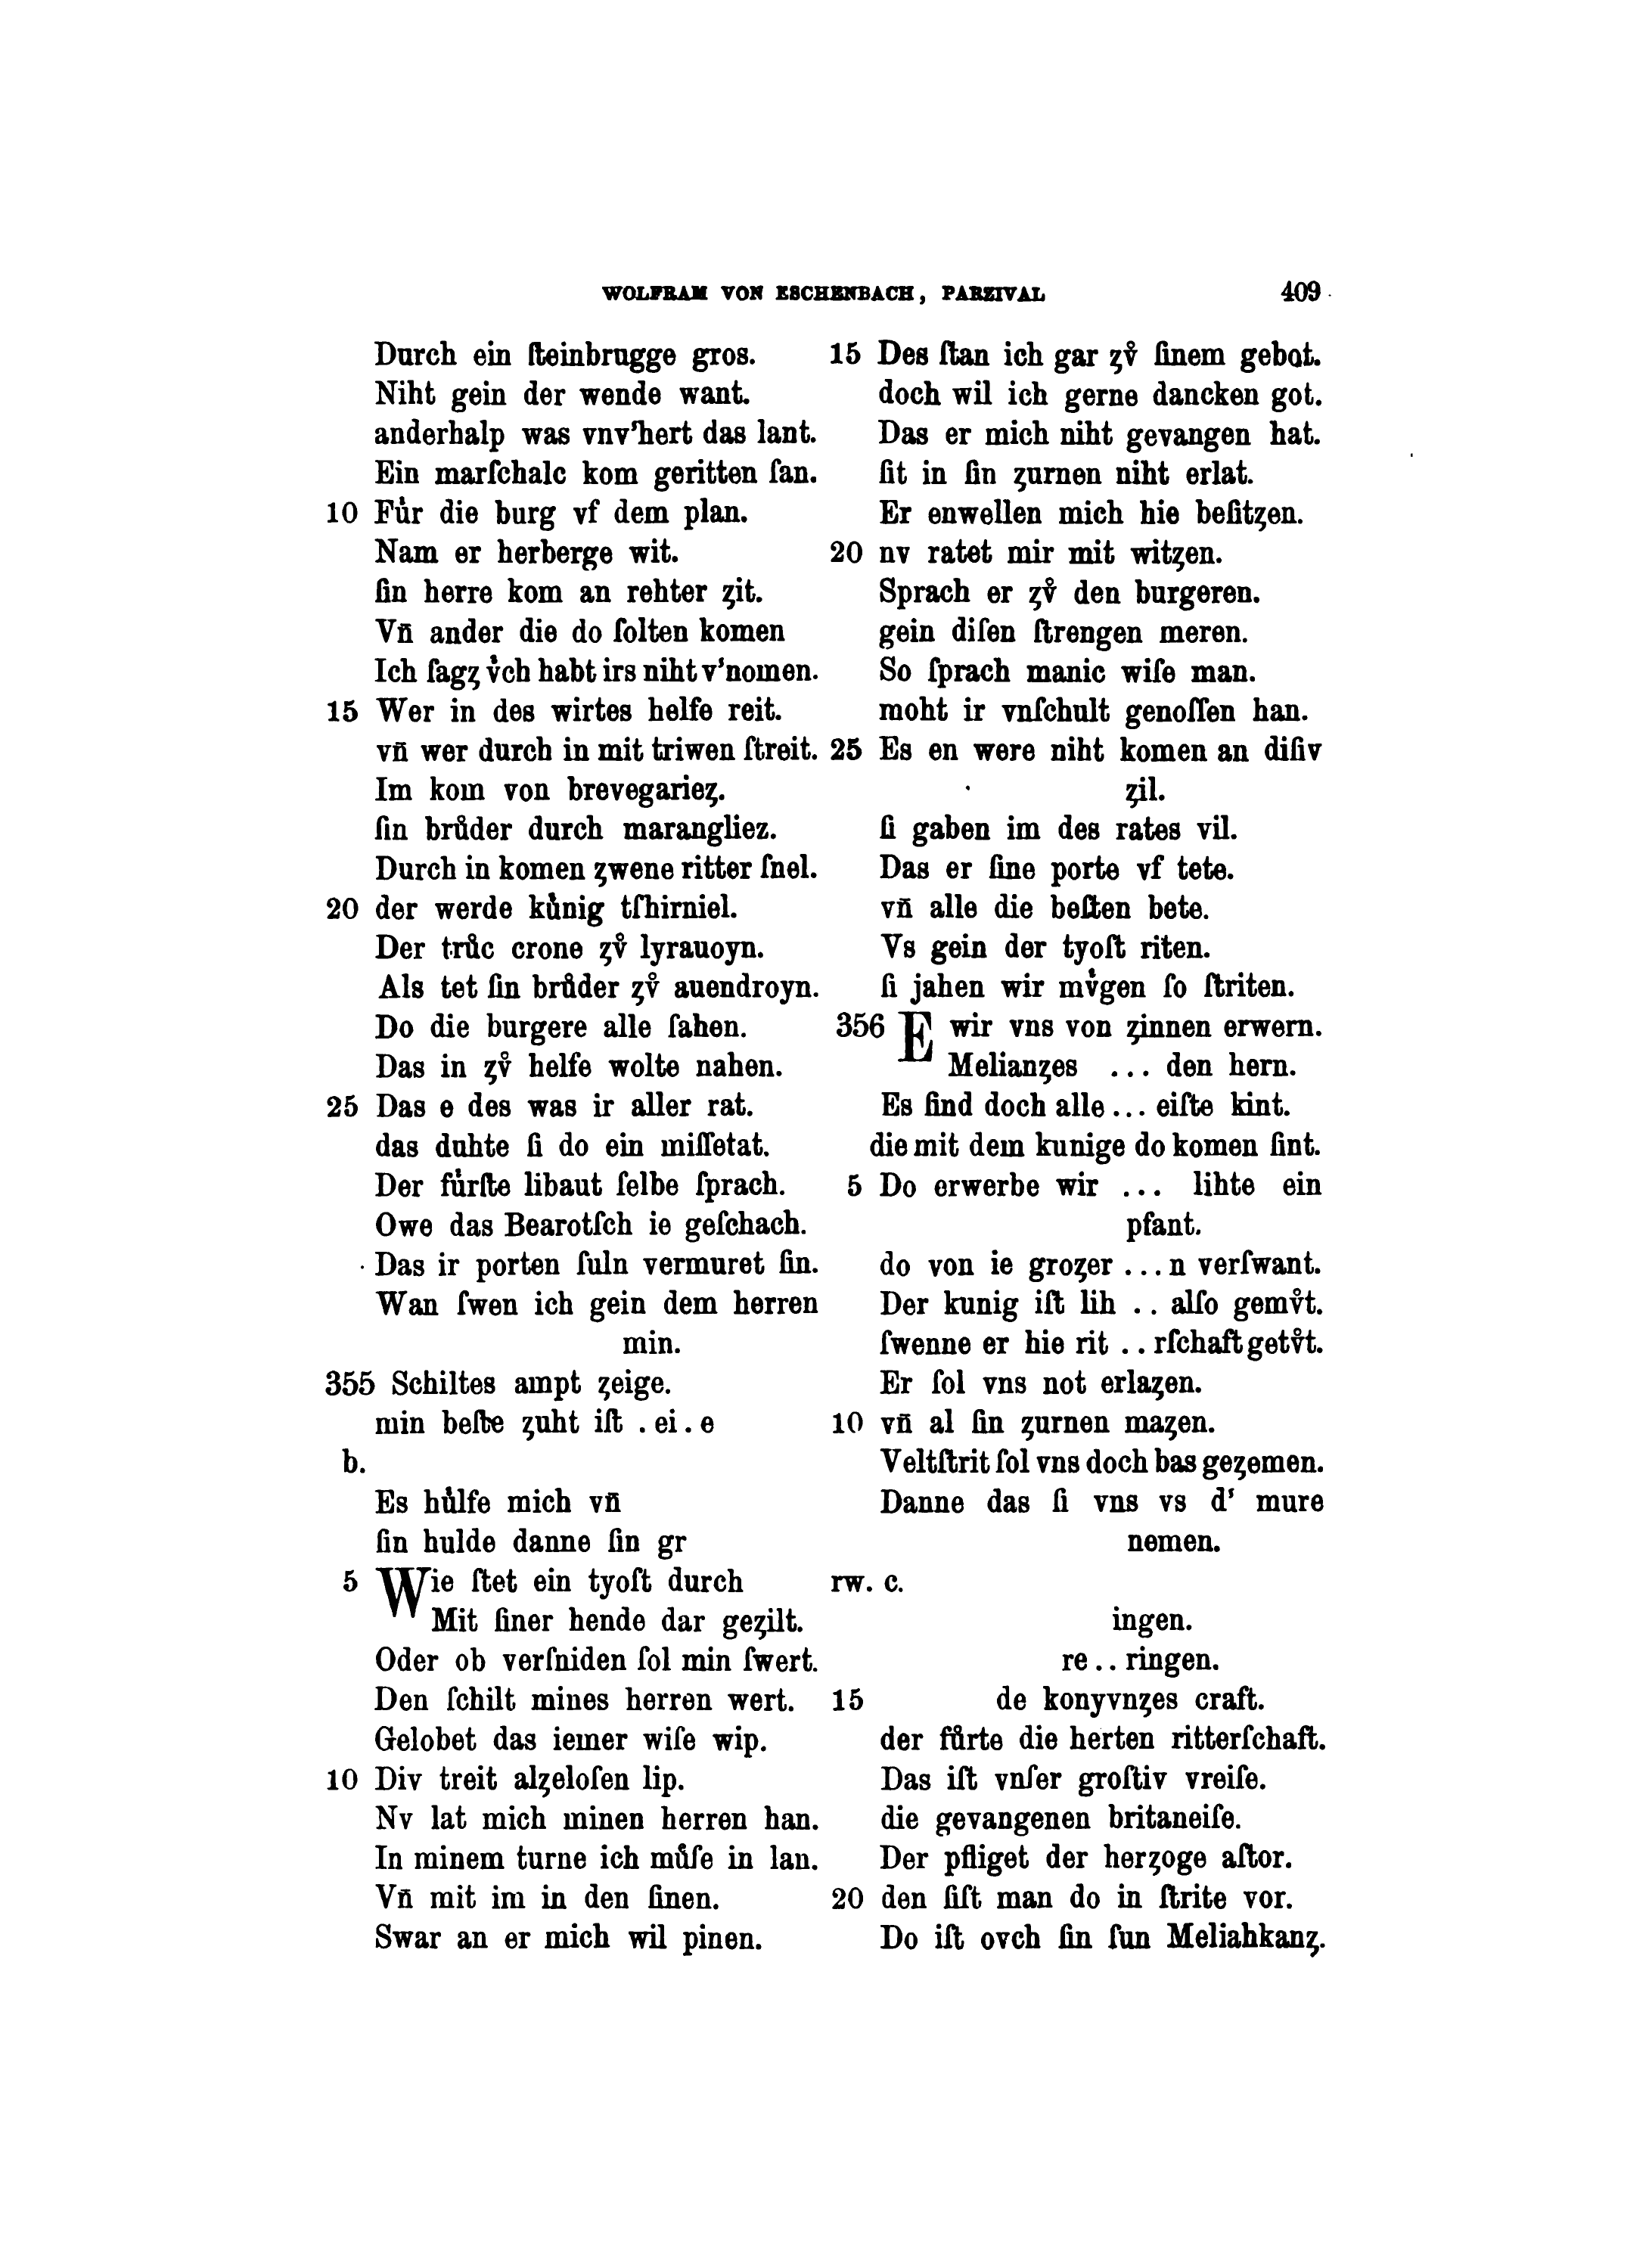 WOLFRAM VON ESCHENBACH, PARZIVAL 409
Durch ein ſteinbrugge gros.
Niht gein der wende want.
anderhalp was vnv'hert das lant.
Ein marſchalc kom geritten ſan.
10 Fu̓r die burg vf dem plan.
Nam er herberge wit.
ſin herre kom an rehter ʒit.
Vn̄ ander die do ſolten komen
Ich ſagʒ v̓ch habt irs niht v'nomen.
15 Wer in des wirtes helfe reit.
vn̄ wer durch in mit triwen ſtreit.
Im kom von brevegarieʒ.
ſin brůder durch marangliez.
Durch in komen ʒwene ritter ſnel.
20 der werde ku̓nig tſhirniel.
Der trůc crone ʒv̊ lyrauoyn.
Als tet ſin brůder ʒv̊ auendroyn.
Do die burgere alle ſahen.
Das in ʒv̊ helfe wolte nahen.
25 Das e des was ir aller rat.
das duhte ſi do ein miſſetat.
Der fu̓rſte libaut ſelbe ſprach.
Owe das Bearotſch ie geſchach.
Das ir porten ſuln vermuret ſin.
Wan ſwen ich gein dem herren
min.
355 Schiltes ampt ʒeige.
min beſte ʒuht iſt . ei . e
b.
Es hu̓lfe mich vn̄
ſin hulde danne ſin gr
5 Wie ſtet ein tyoſt durch
Mit ſiner hende dar geʒilt.
Oder ob verſniden ſol min ſwert.
Den ſchilt mines herren wert.
Gelobet das iemer wiſe wip.
10 Div treit alʒeloſen lip.
Nv lat mich minen herren han.
In minem turne ich můſe in lan.
Vn̄ mit im in den ſinen.
Swar an er mich wil pinen.
15 Des ſtan ich gar ʒv̊ ſinem gebot.
doch wil ich gerne dancken got.
Das er mich niht gevangen hat.
ſit in ſin ʒurnen niht erlat.
Er enwellen mich hie beſitʒen.
20 nv ratet mir mit witʒen.
Sprach er ʒv̊ den burgeren.
gein diſen ſtrengen meren.
So ſprach manic wiſe man.
moht ir vnſchult genoſſen han.
25 Es en were niht komen an diſiv
ʒil.
ſi gaben im des rates vil.
Das er ſine porte vf tete.
vn̄ alle die beſten bete.
Vs gein der tyoſt riten.
ſi jahen wir mv̓gen ſo ſtriten.
356 E wir vns von ʒinnen erwern.
Melianʒes ... den hern.
Es ſind doch alle ... eiſte kint.
die mit dem kunige do komen ſint.
5 Do erwerbe wir ... lihte ein
pfant.
do von ie groʒer ... n verſwant.
Der kunig iſt lih .. alſo gemv̊t.
ſwenne er hie rit .. rſchaft getv̊t.
Er ſol vns not erlaʒen.
10 vn̄ al ſin ʒurnen maʒen.
Veltſtrit ſol vns doch bas geʒemen.
Danne das ſi vns vs d' mure
nemen.
rw. c.
ingen.
re .. ringen.
15 de konyvnʒes craft.
der fůrte die herten ritterſchaft.
Das iſt vnſer groſtiv vreiſe.
die gevangenen britaneiſe.
Der pfliget der herʒoge aſtor.
20 den ſiſt man do in ſtrite vor.
Do iſt ovch ſin ſun Meliahkanʒ.